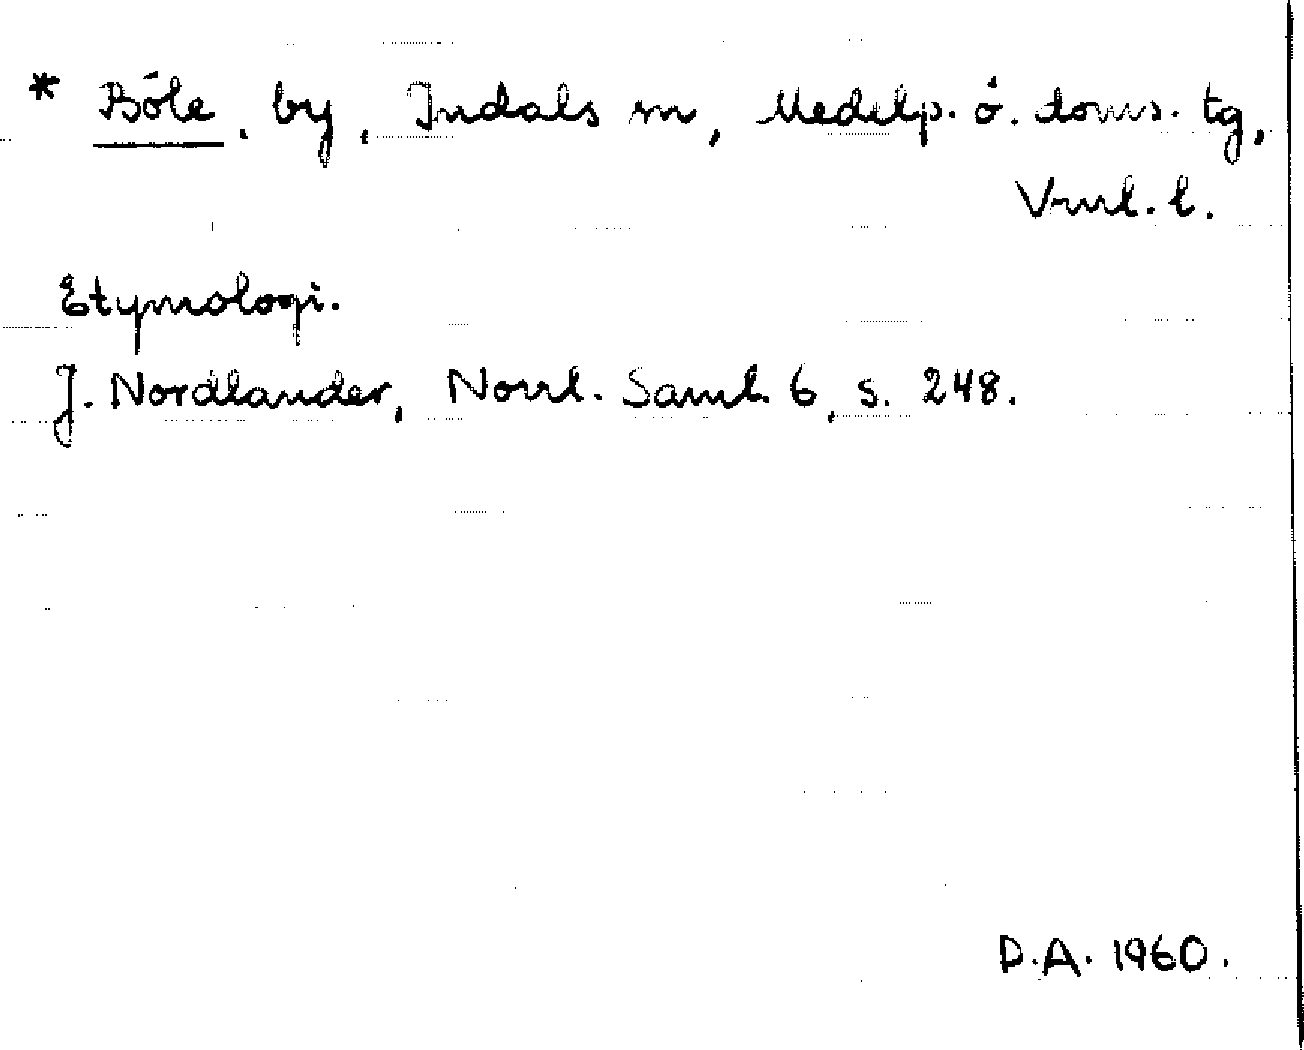 * Böle, by, Indals sn, Medelp. ö. doms. tg,
Vnrl. l.
Etymologi.
J. Nordlander, Norrl. Saml. 6, s. 248.
D.A. 1960.